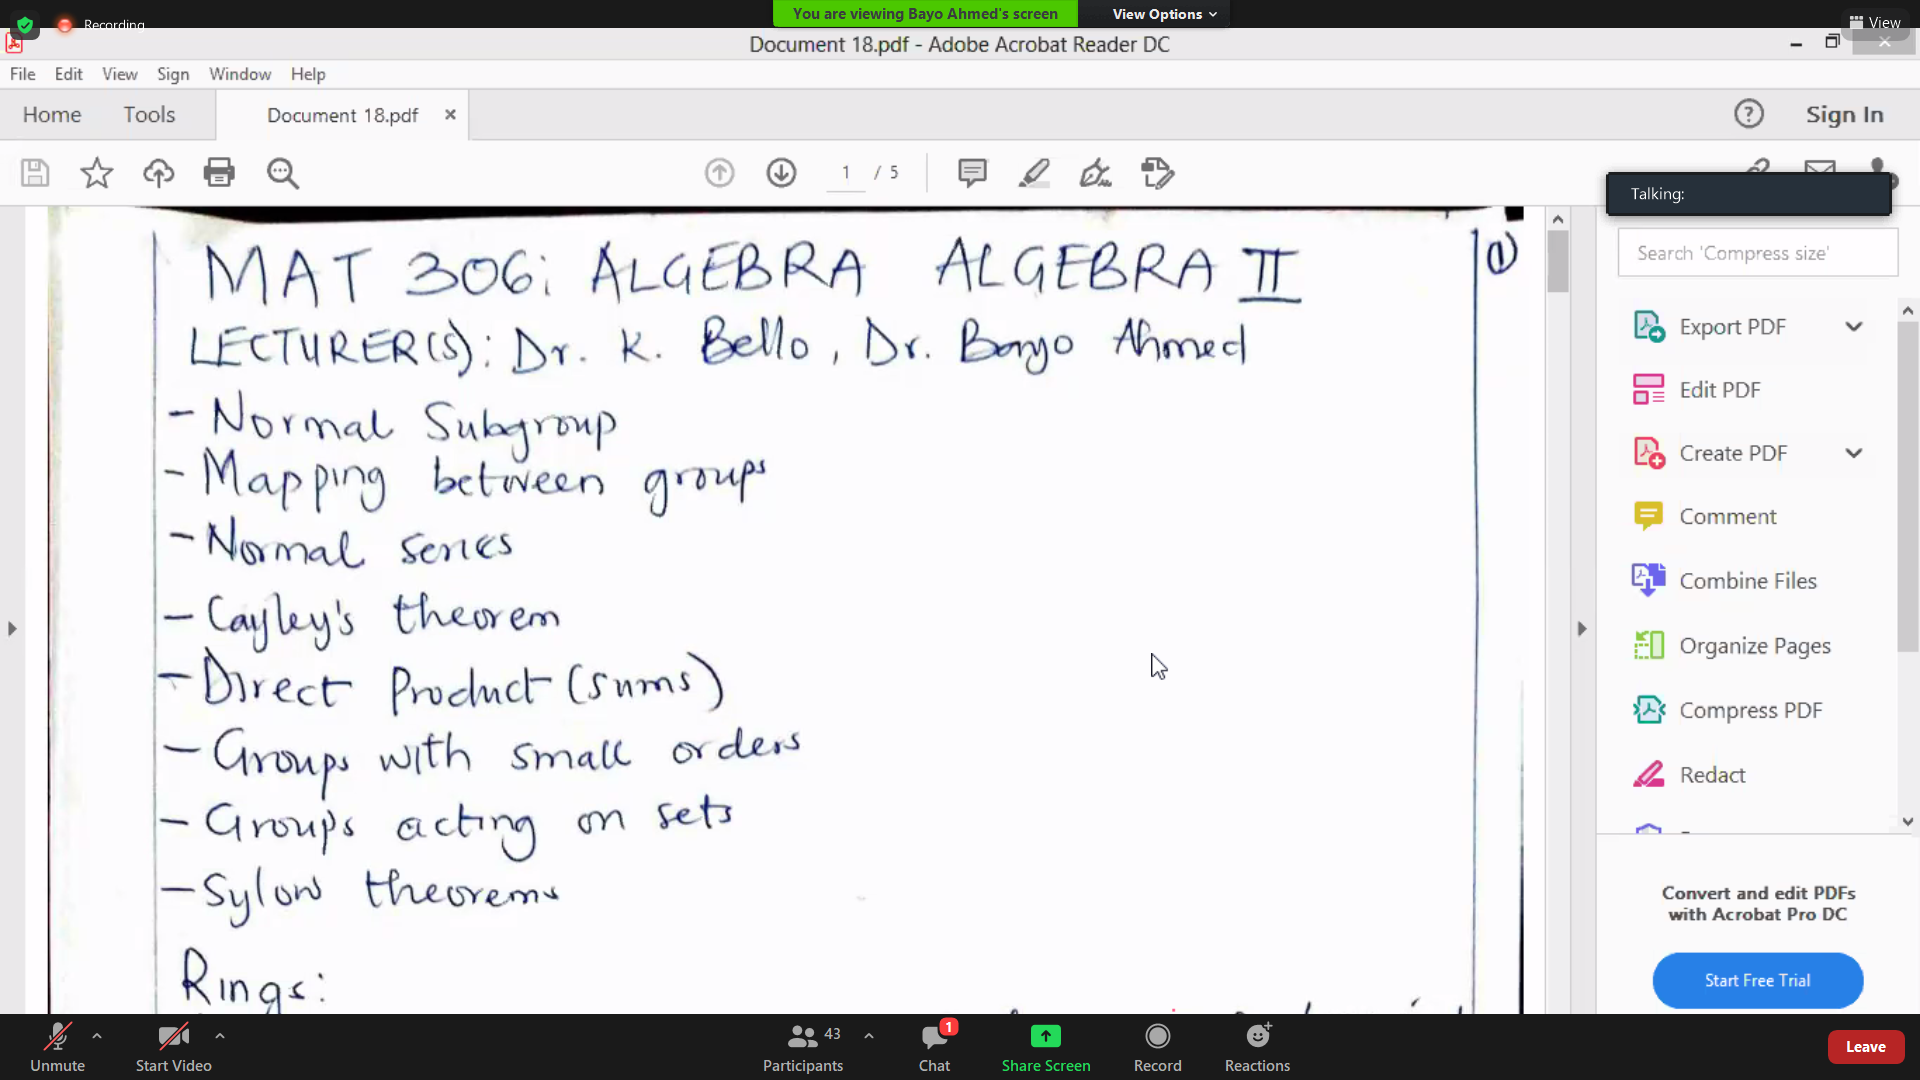 Recording
You are viewing Bayo Ahmed's screen
View Options
View
Document 18.pdf - Adobe Acrobat Reader DC
File Edit View Sign Window Help
Home Tools Document 18.pdf ×
Sign In
1 / 5
Talking:
MAT 306: ALGEBRA ALGEBRA II
1
LECTURER(S): Dr. K. Bello, Dr. Bayo Ahmed
- Normal Subgroup
- Mapping between groups
- Normal series
- Cayley's theorem
- Direct Product (sums)
- Groups with small orders
- Groups acting on sets
- Sylow theorems
Rings:
Search 'Compress size'
Export PDF
Edit PDF
Create PDF
Comment
Combine Files
Organize Pages
Compress PDF
Redact
Convert and edit PDFs
with Acrobat Pro DC
Start Free Trial
Unmute
Start Video
43
Participants
1
Chat
Share Screen
Record
Reactions
Leave